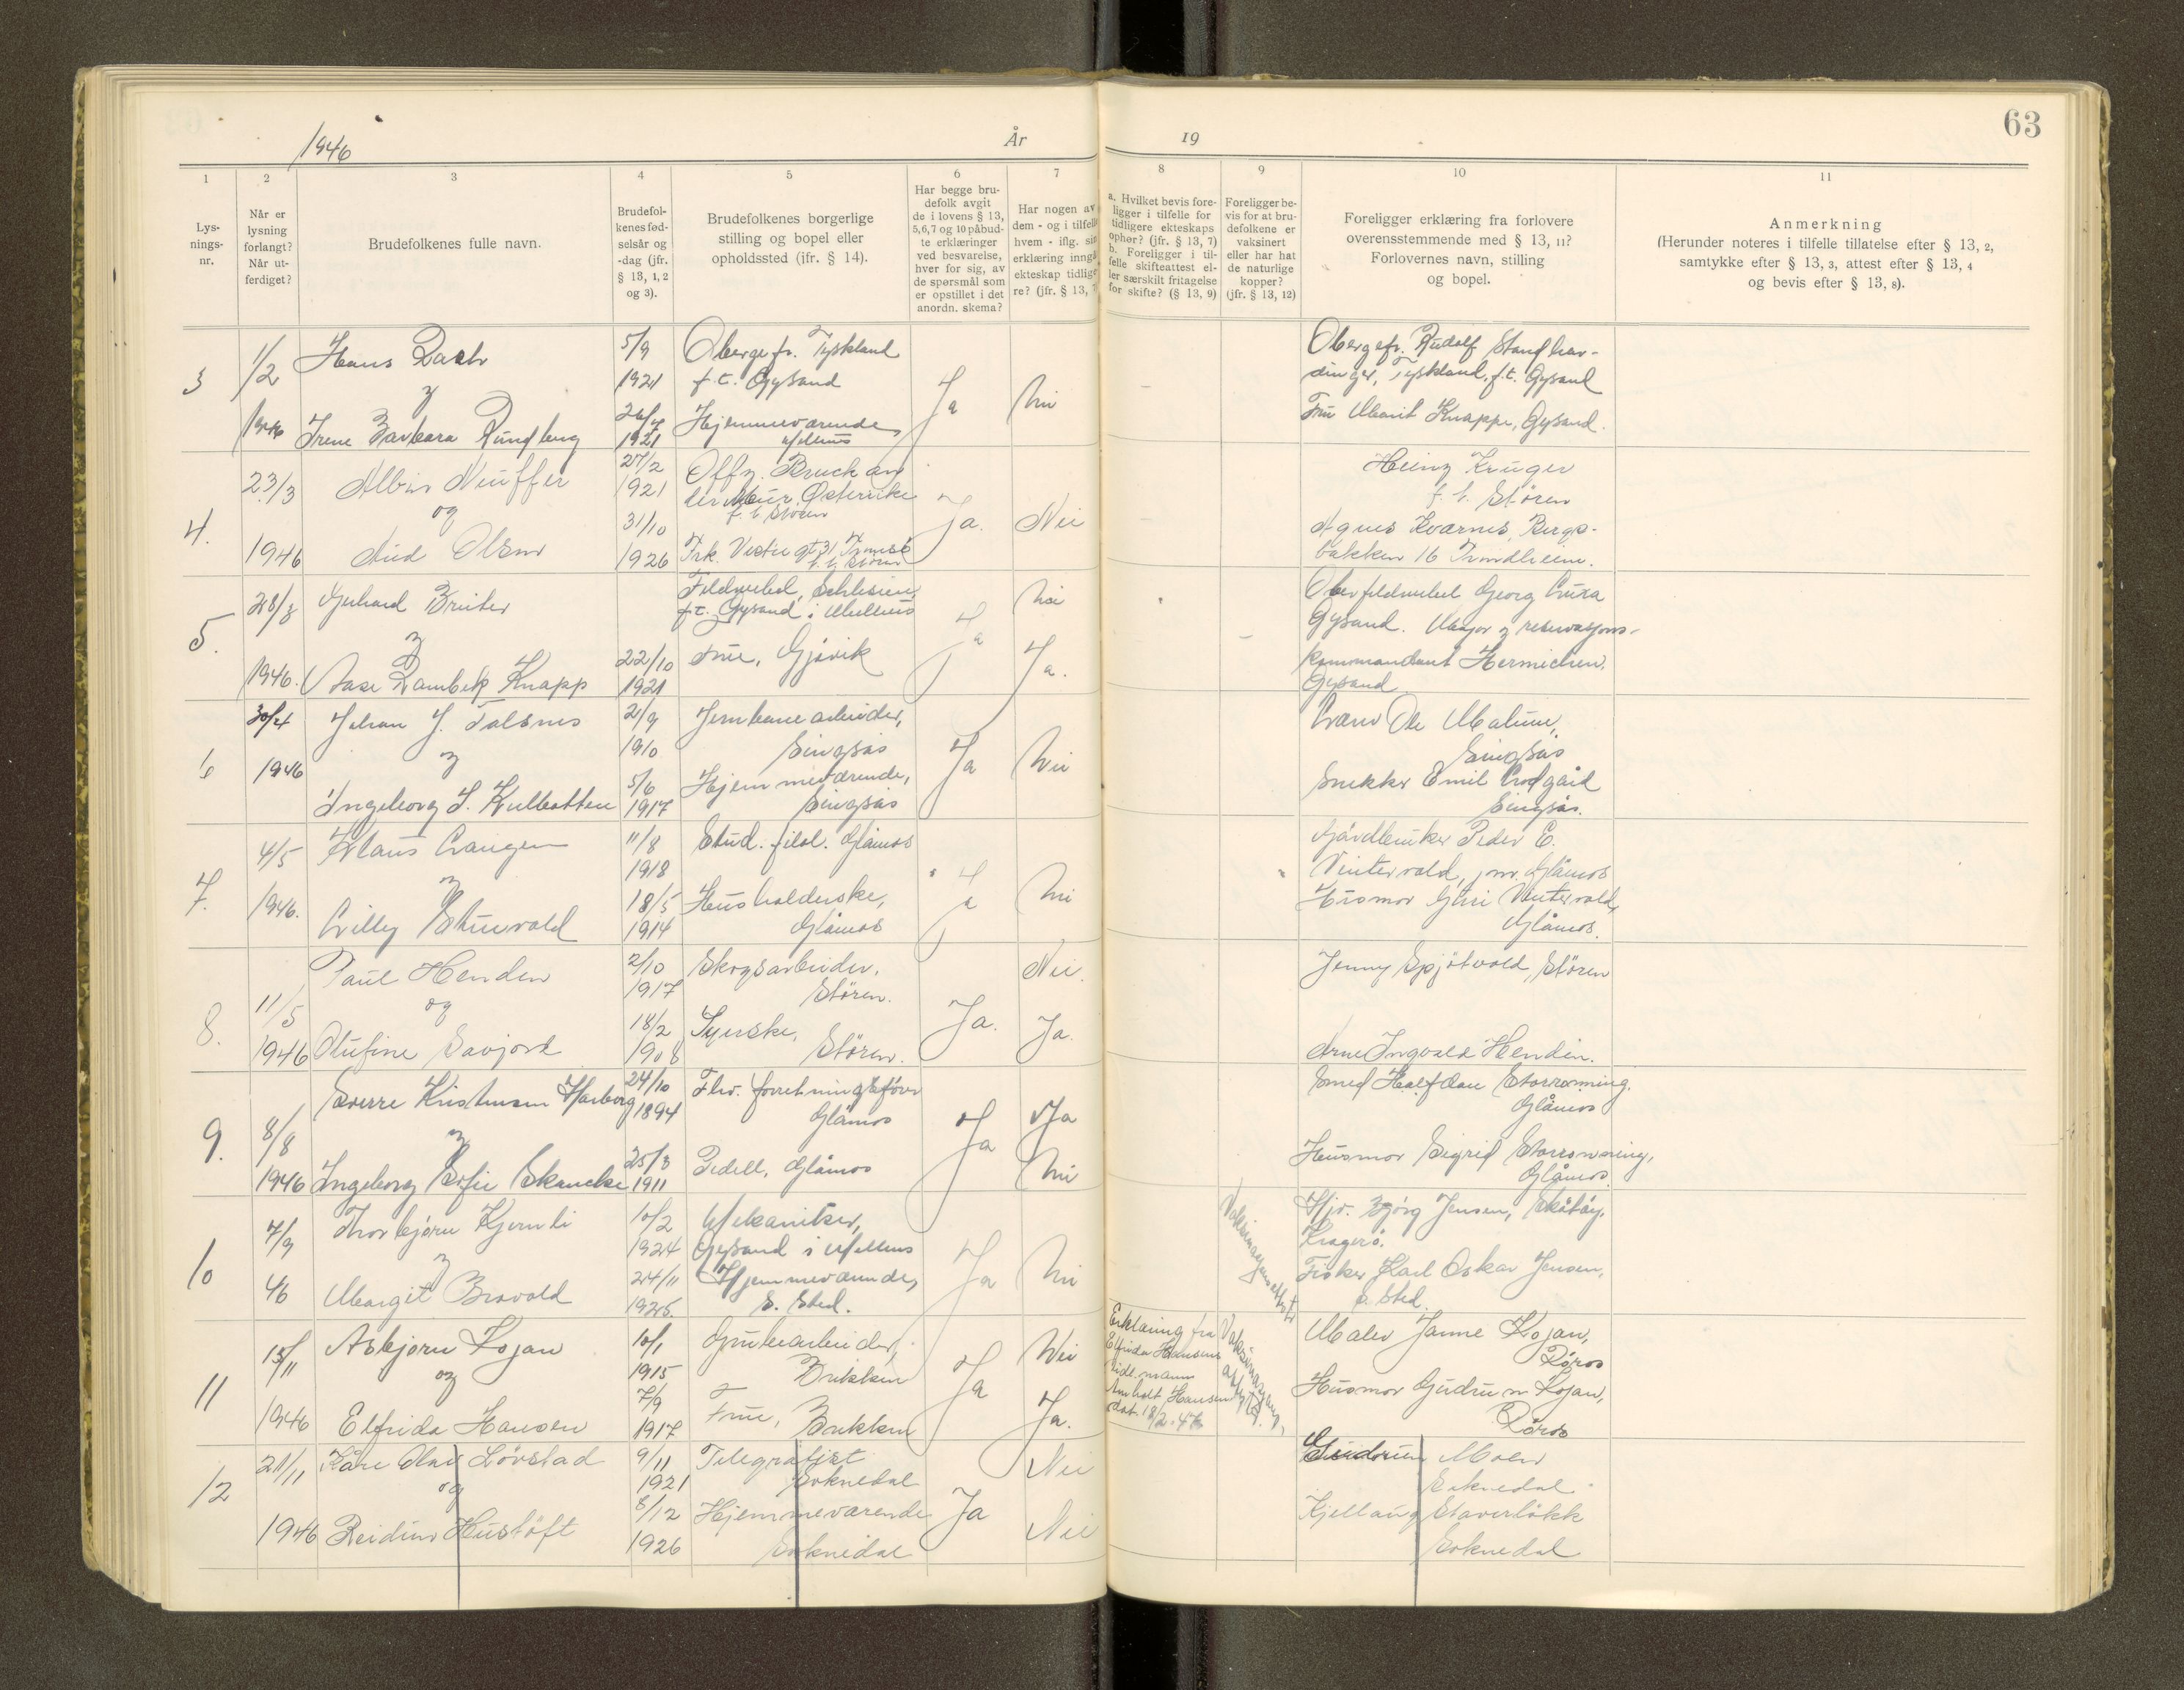 63
1946
År
19
1
Lys-
nings-
nr.
2
Når er
lysning
forlangt?
Når ut-
ferdiget?
3
Brudefolkenes fulle navn.
4
Brudefol-
kenes fød-
selsår og
-dag (jfr.
§ 13, 1, 2
og 3).
5
Brudefolkenes borgerlige
stilling og bopel eller
opholdssted (jfr. § 14).
6
Har begge bru-
defolk avgit
de i lovens § 13,
5,6,7 og 10 påbud-
te erklæringer
ved besvarelse,
hver for sig, av
de spørsmål som
er opstillet i det
anordn. skema?
7
Har nogen av
dem - og i tilfelle
hvem - iflg. sin
erklæring inngå
ekteskap tidlige
re? (jfr. § 13, 7
8
a. Hvilket bevis fore-
ligger i tilfelle for
tidligere ekteskaps
ophør? (jfr. § 13, 7)
b. Foreligger i til-
felle skifteattest el-
ler særskilt fritagelse
for skifte? (§ 13, 9)
9
Foreligger be-
vis for at bru-
defolkene er
vaksinert
eller har hat
de naturlige
kopper?
(jfr. § 13, 12)
10
Foreligger erklæring fra forlovere
overensstemmende med § 13, 11?
Forlovernes navn, stilling
og bopel.
11
Anmerkning
(Herunder noteres i tilfelle tillatelse efter § 13, 2,
samtykke efter § 13, 3, attest efter § 13, 4
og bevis efter § 13, 8).
3
1/2
1946
Hans
og
Irene Barbara Rundberg
5/9
1921
26/7
1921
Obergefr. Tyskland
f.t. Gysand
Hjemmeværende
Ja
Nei
Obergefr. Rudolf Standhar-
dinger, Tyskland, f.t. Gysand
Fru Marit Knappe, Gysand.
4.
23/3
1946
Albin Neuffer
og
Aud Olsen
27/2
1921
31/10
1926
Offz. Bruck an
der Mur, Østerrike
f. t. Støren
Frk. Vestre gt 31 Tromsø
f. t. Støren
Ja.
Nei
Heinz Kruger
f. t. Støren
Agnes Kvarnes, Bergs-
bakken 16 Trondheim.
5.
28/3
1946.
Gerhard
og
Aase Rambek Knapp
22/10
1921
Feldwebel, Schlesien,
f.t. Gysand i Melhus
Frue, Gjøvik
Ja
Nei
Ja.
Oberfeldwebel Georg
Gysand. Major og reservasjons-
kommandant Hermichen.
Gysand
6
30/4
1946
Johan J. Talsnes
og
Ingeborg S. Kulbotten
2/9
1910
5/6
1917
Jernbanearbeider,
Singsås
Hjemmeværende,
Singsås
Ja
Nei
Ole
Singsås
Snekker Emil
Singsås.
7.
4/5
1946.
Klaus Langen
og
Lilly
11/8
1918
18/5
1914
Stud. filol. Glåmos
Husholderske,
Glåmos
Ja
Nei
Gårdbruker Peder E.
Vintervold, jnr. Glåmos
Husmor Guri Vintervold,
Glåmos.
8.
11/5
1946
Paul Henden
og
Olufine Savjord
2/10
1917
18/2
1908
Skogsarbeider.
Støren.
Syerske,
Støren.
Ja.
Nei.
Ja.
Jenny Spjøtvold, Støren
Arne Ingvald Henden.
9.
8/8
1946
Sverre Kristensen Harborg
og
Ingeborg Sofie Skancke
24/10
1894
25/3
1911
Fhv. forretningsfører
Glåmos
Pedell, Glåmos
Ja
Ja
Nei
Smed Halfdan Storrønning.
Glåmos
Husmor Sigrid Storrønning,
Glåmos.
10
7/9
46
Thorbjørn Kjernli
og
Margit Brovold
10/2
1924
24/11
1925
Mekaniker,
Gysand i Melhus
Hjemmeværende,
S. sted.
Ja
Nei
Hjv. Bjørg Jensen, Skåtøy,
Kragerø.
Fisker Karl Oskar Jensen,
s. sted.
11
15/11
1946
Asbjørn Kojan
og
Elfrida Hansen
10/1
1915
7/9
1917
Grubearbeider,
Brekken
Frue, Brekken
Ja
Nei
Ja.
Erklæring fra
Elfrida Hansens
tidl. mann
Hansen
dat. 18/2-46
Maler Janne Kojan,
Røros
Husmor Gudrun Kojan,
Røros
12
21/11
1946
Kåre Olav Løvstad
og
Reidun Hustøft
9/11
1921
8/12
1926
Telegrafist
Soknedal
Hjemmeværende
Soknedal
Ja
Nei
Nei
Gudrun Moen
Soknedal
Kjellaug Staverløkk
Soknedal